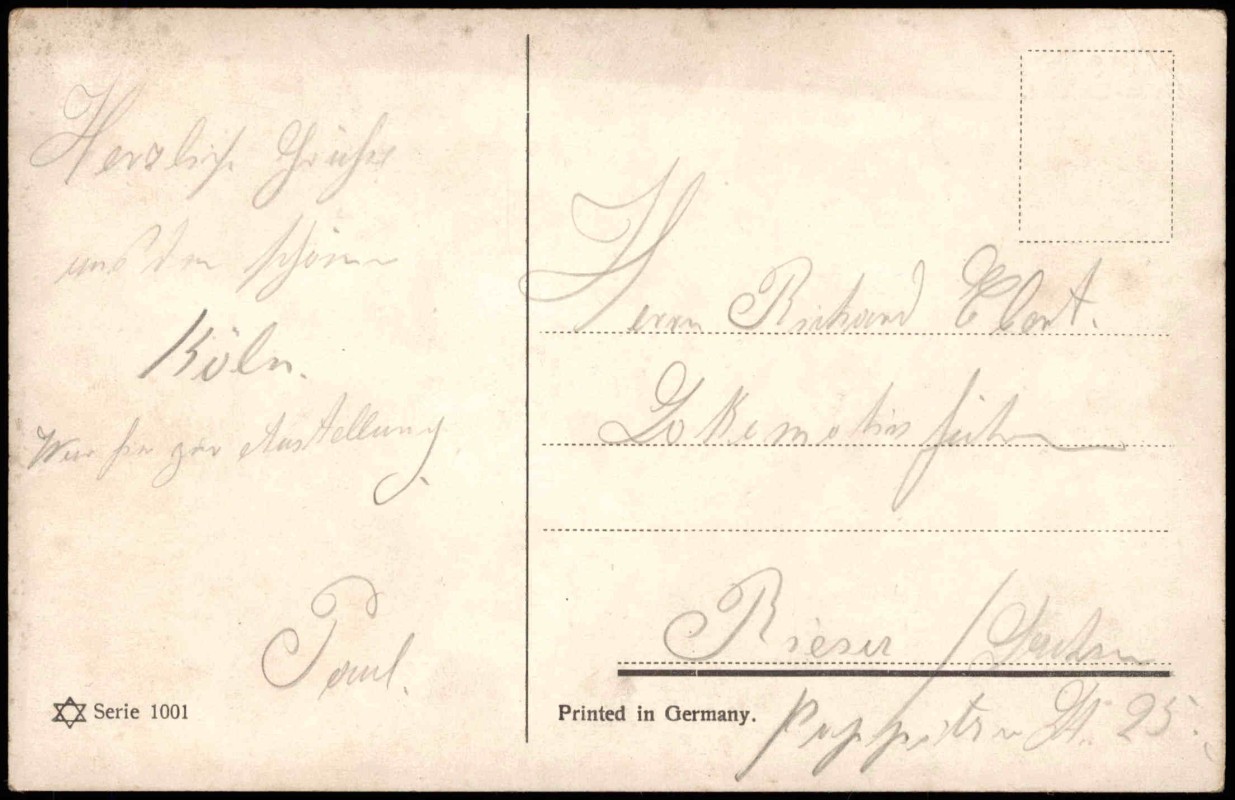 Herzliche Grüße
aus dem schönen
Köln.
War hier zur Austellung.
Paul.
Serie 1001
Herrn Richard Ebert.
Lokomotivführer
Riesa / Sachsen
Poppitzer St. 25.
Printed in Germany.